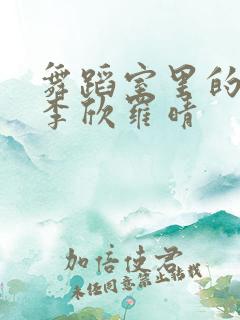 舞蹈室里的
李欣羅晴
加倍使君
未经同意禁止转载